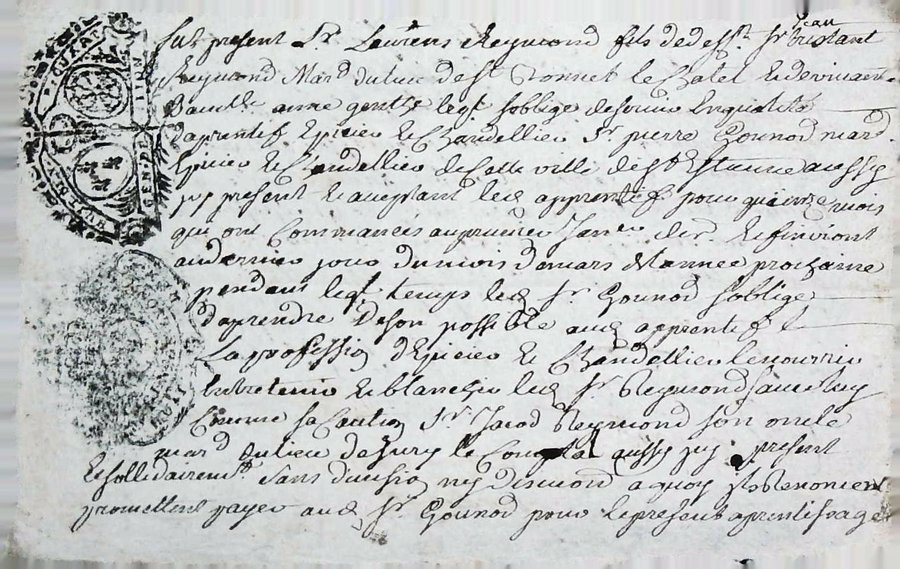 Jean
fut present Sr. Laurens Reymond fils de deft. Sr tristant
Reymond Mard du lieu de St Bonnet le Chatel
aurie gentis leqt. s'oblige de servir en qualité
d'aprentif Epicier et Chandellier Sr. pierre Gounod mard
Epicier et Chandellier de cette ville de St Estienne aussy
icy present et aceptant led apprentif pour quinze mois
qui ont Commancés au premier Janer. der. et finiront
au dernier jour du mois de mars de l'annee prochaine
pendant leqt. temps led Sr. Gounod s'oblige
d'aprendre de son possible aud apprentif
La profession d'Epicier et Chandellier le nourrir
entretenir et blanchir led Sr. Reymond
Comme sa Caution Sr. Jacod Reymond son oncle
mard du lieu de Sury le Comptal aussy icy present
et sollidairemt. sans division ny discution a quoy ils renoncent
promettent payer aud Sr. Gounod pour le present aprentissage
GENDE LION